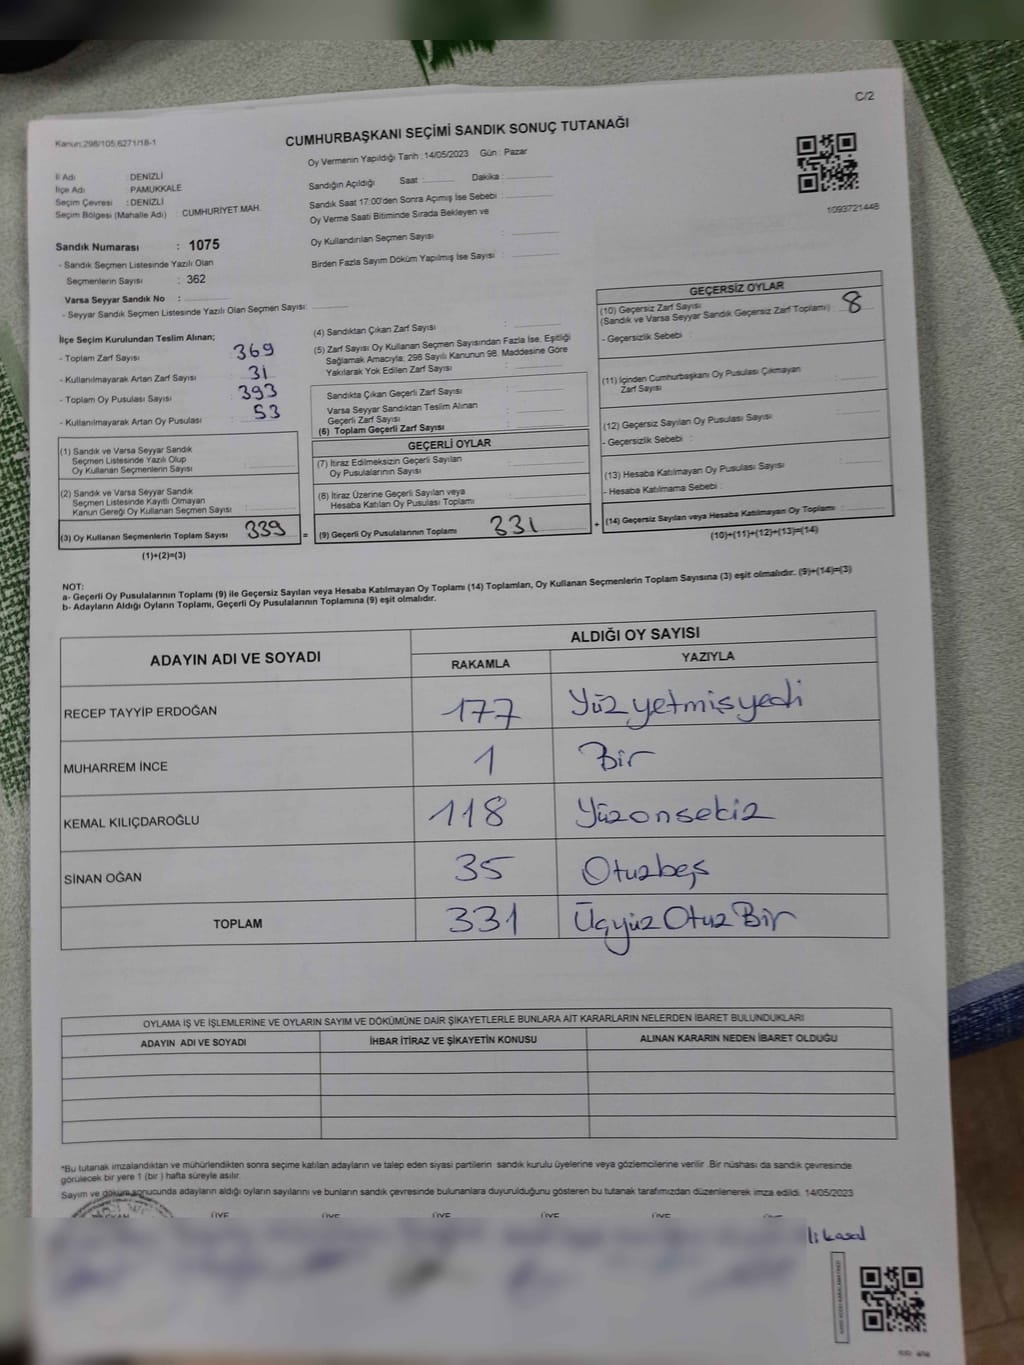 C/2
Kanun:298/105,6271/18-1
CUMHURBAŞKANI SEÇİMİ SANDIK SONUÇ TUTANAĞI
Oy Vermenin Yapıldığı Tarih :14/05/2023 Gün : Pazar
İl Adı : DENİZLİ
İlçe Adı : PAMUKKALE
Seçim Çevresi : DENİZLİ
Seçim Bölgesi (Mahalle Adı) : CUMHURİYET MAH.
Sandığın Açıldığı Saat : Dakika :
Sandık Saat 17:00'den Sonra Açımış İse Sebebi :
Oy Verme Saati Bitiminde Sırada Bekleyen ve
Oy Kullandırılan Seçmen Sayısı :
Birden Fazla Sayım Döküm Yapılmış İse Sayısı :
1093721448
Sandık Numarası : 1075
- Sandık Seçmen Listesinde Yazılı Olan
Seçmenlerin Sayısı : 362
Varsa Seyyar Sandık No :
- Seyyar Sandık Seçmen Listesinde Yazılı Olan Seçmen Sayısı:
İlçe Seçim Kurulundan Teslim Alınan;
- Toplam Zarf Sayısı : 369
- Kullanılmayarak Artan Zarf Sayısı : 31
- Toplam Oy Pusulası Sayısı : 393
- Kullanılmayarak Artan Oy Pusulası : 53
(1) Sandık ve Varsa Seyyar Sandık
Seçmen Listesinde Yazılı Olup
Oy Kullanan Seçmenlerin Sayısı :
(2) Sandık ve Varsa Seyyar Sandık
Seçmen Listesinde Kayıtlı Olmayan
Kanun Gereği Oy Kullanan Seçmen Sayısı :
(3) Oy Kullanan Seçmenlerin Toplam Sayısı 339 =
(1)+(2)=(3)
(4) Sandıktan Çıkan Zarf Sayısı :
(5) Zarf Sayısı Oy Kullanan Seçmen Sayısından Fazla İse, Eşitliği
Sağlamak Amacıyla; 298 Sayılı Kanunun 98. Maddesine Göre
Yakılarak Yok Edilen Zarf Sayısı :
Sandıkta Çıkan Geçerli Zarf Sayısı :
Varsa Seyyar Sandıktan Teslim Alınan
Geçerli Zarf Sayısı :
(6) Toplam Geçerli Zarf Sayısı :
GEÇERLİ OYLAR
(7) İtiraz Edilmeksizin Geçerli Sayılan
Oy Pusulalarının Sayısı :
(8) İtiraz Üzerine Geçerli Sayılan veya
Hesaba Katılan Oy Pusulası Toplamı :
(9) Geçerli Oy Pusulalarının Toplamı 331 +
GEÇERSİZ OYLAR
(10) Geçersiz Zarf Sayısı
(Sandık ve Varsa Seyyar Sandık Geçersiz Zarf Toplamı) : 8
- Geçersizlik Sebebi :
(11) İçinden Cumhurbaşkanı Oy Pusulası Çıkmayan
Zarf Sayısı :
(12) Geçersiz Sayılan Oy Pusulası Sayısı :
- Geçersizlik Sebebi :
(13) Hesaba Katılmayan Oy Pusulası Sayısı :
- Hesaba Katılmama Sebebi :
(14) Geçersiz Sayılan veya Hesaba Katılmayan Oy Toplamı :
(10)+(11)+(12)+(13)=(14)
NOT:
a- Geçerli Oy Pusulalarının Toplamı (9) ile Geçersiz Sayılan veya Hesaba Katılmayan Oy Toplamı (14) Toplamları, Oy Kullanan Seçmenlerin Toplam Sayısına (3) eşit olmalıdır. (9)+(14)=(3)
b- Adayların Aldığı Oyların Toplamı, Geçerli Oy Pusulalarının Toplamına (9) eşit olmalıdır.
ADAYIN ADI VE SOYADI ALDIĞI OY SAYISI
RAKAMLA YAZIYLA
RECEP TAYYİP ERDOĞAN 177 Yüzyetmişyedi
MUHARREM İNCE 1 Bir
KEMAL KILIÇDAROĞLU 118 Yüzonsekiz
SİNAN OĞAN 35 Otuzbeş
TOPLAM 331 ÜçyüzOtuzBir
OYLAMA İŞ VE İŞLEMLERİNE VE OYLARIN SAYIM VE DÖKÜMÜNE DAİR ŞİKAYETLERLE BUNLARA AİT KARARLARIN NELERDEN İBARET BULUNDUKLARI
ADAYIN ADI VE SOYADI İHBAR İTİRAZ VE ŞİKAYETİN KONUSU ALINAN KARARIN NEDEN İBARET OLDUĞU
*Bu tutanak imzalandıktan ve mühürlendikten sonra seçime katılan adayların ve talep eden siyasi partilerin sandık kurulu üyelerine veya gözlemcilerine verilir .Bir nüshası da sandık çevresinde
görülecek bir yere 1 (bir ) hafta süreyle asılır.
Sayım ve döküm sonucunda adayların aldığı oyların sayılarını ve bunların sandık çevresinde bulunanlara duyurulduğunu gösteren bu tutanak tarafımızdan düzenlenerek imza edildi. 14/05/2023
ÜYE ÜYE ÜYE ÜYE ÜYE